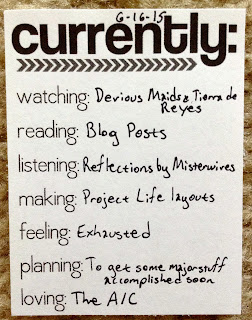 6-16-15
currently:
watching: Devious Maids & Tierra de
Reyes
reading: Blog Posts
listening: Reflections by Misterwires
making: Project Life layouts
feeling: Exhausted
planning: To get some major stuff
accomplished soon
loving: The A/C